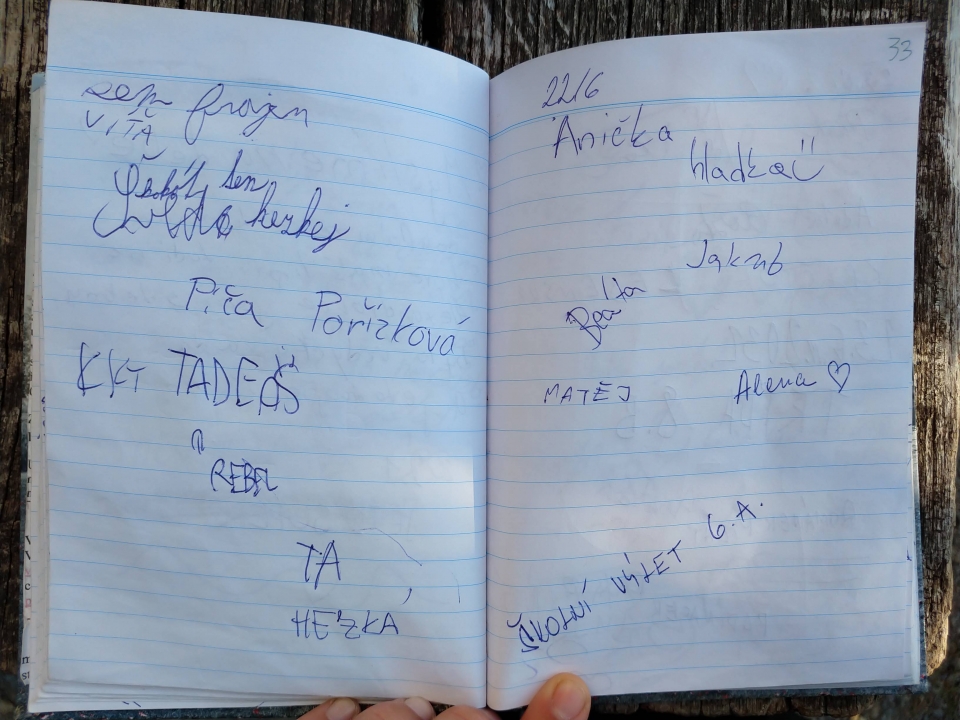 sem frajen
VÍŤA
sem
hezkej
Piča Pořízková
KKT TADEÁŠ
REBEL
TA
HEZKÁ
33
22/6
Anička
hladkať
Jakub
MATĚJ
Alena ♡
ŠKOLNÍ VÝLET 6.A.